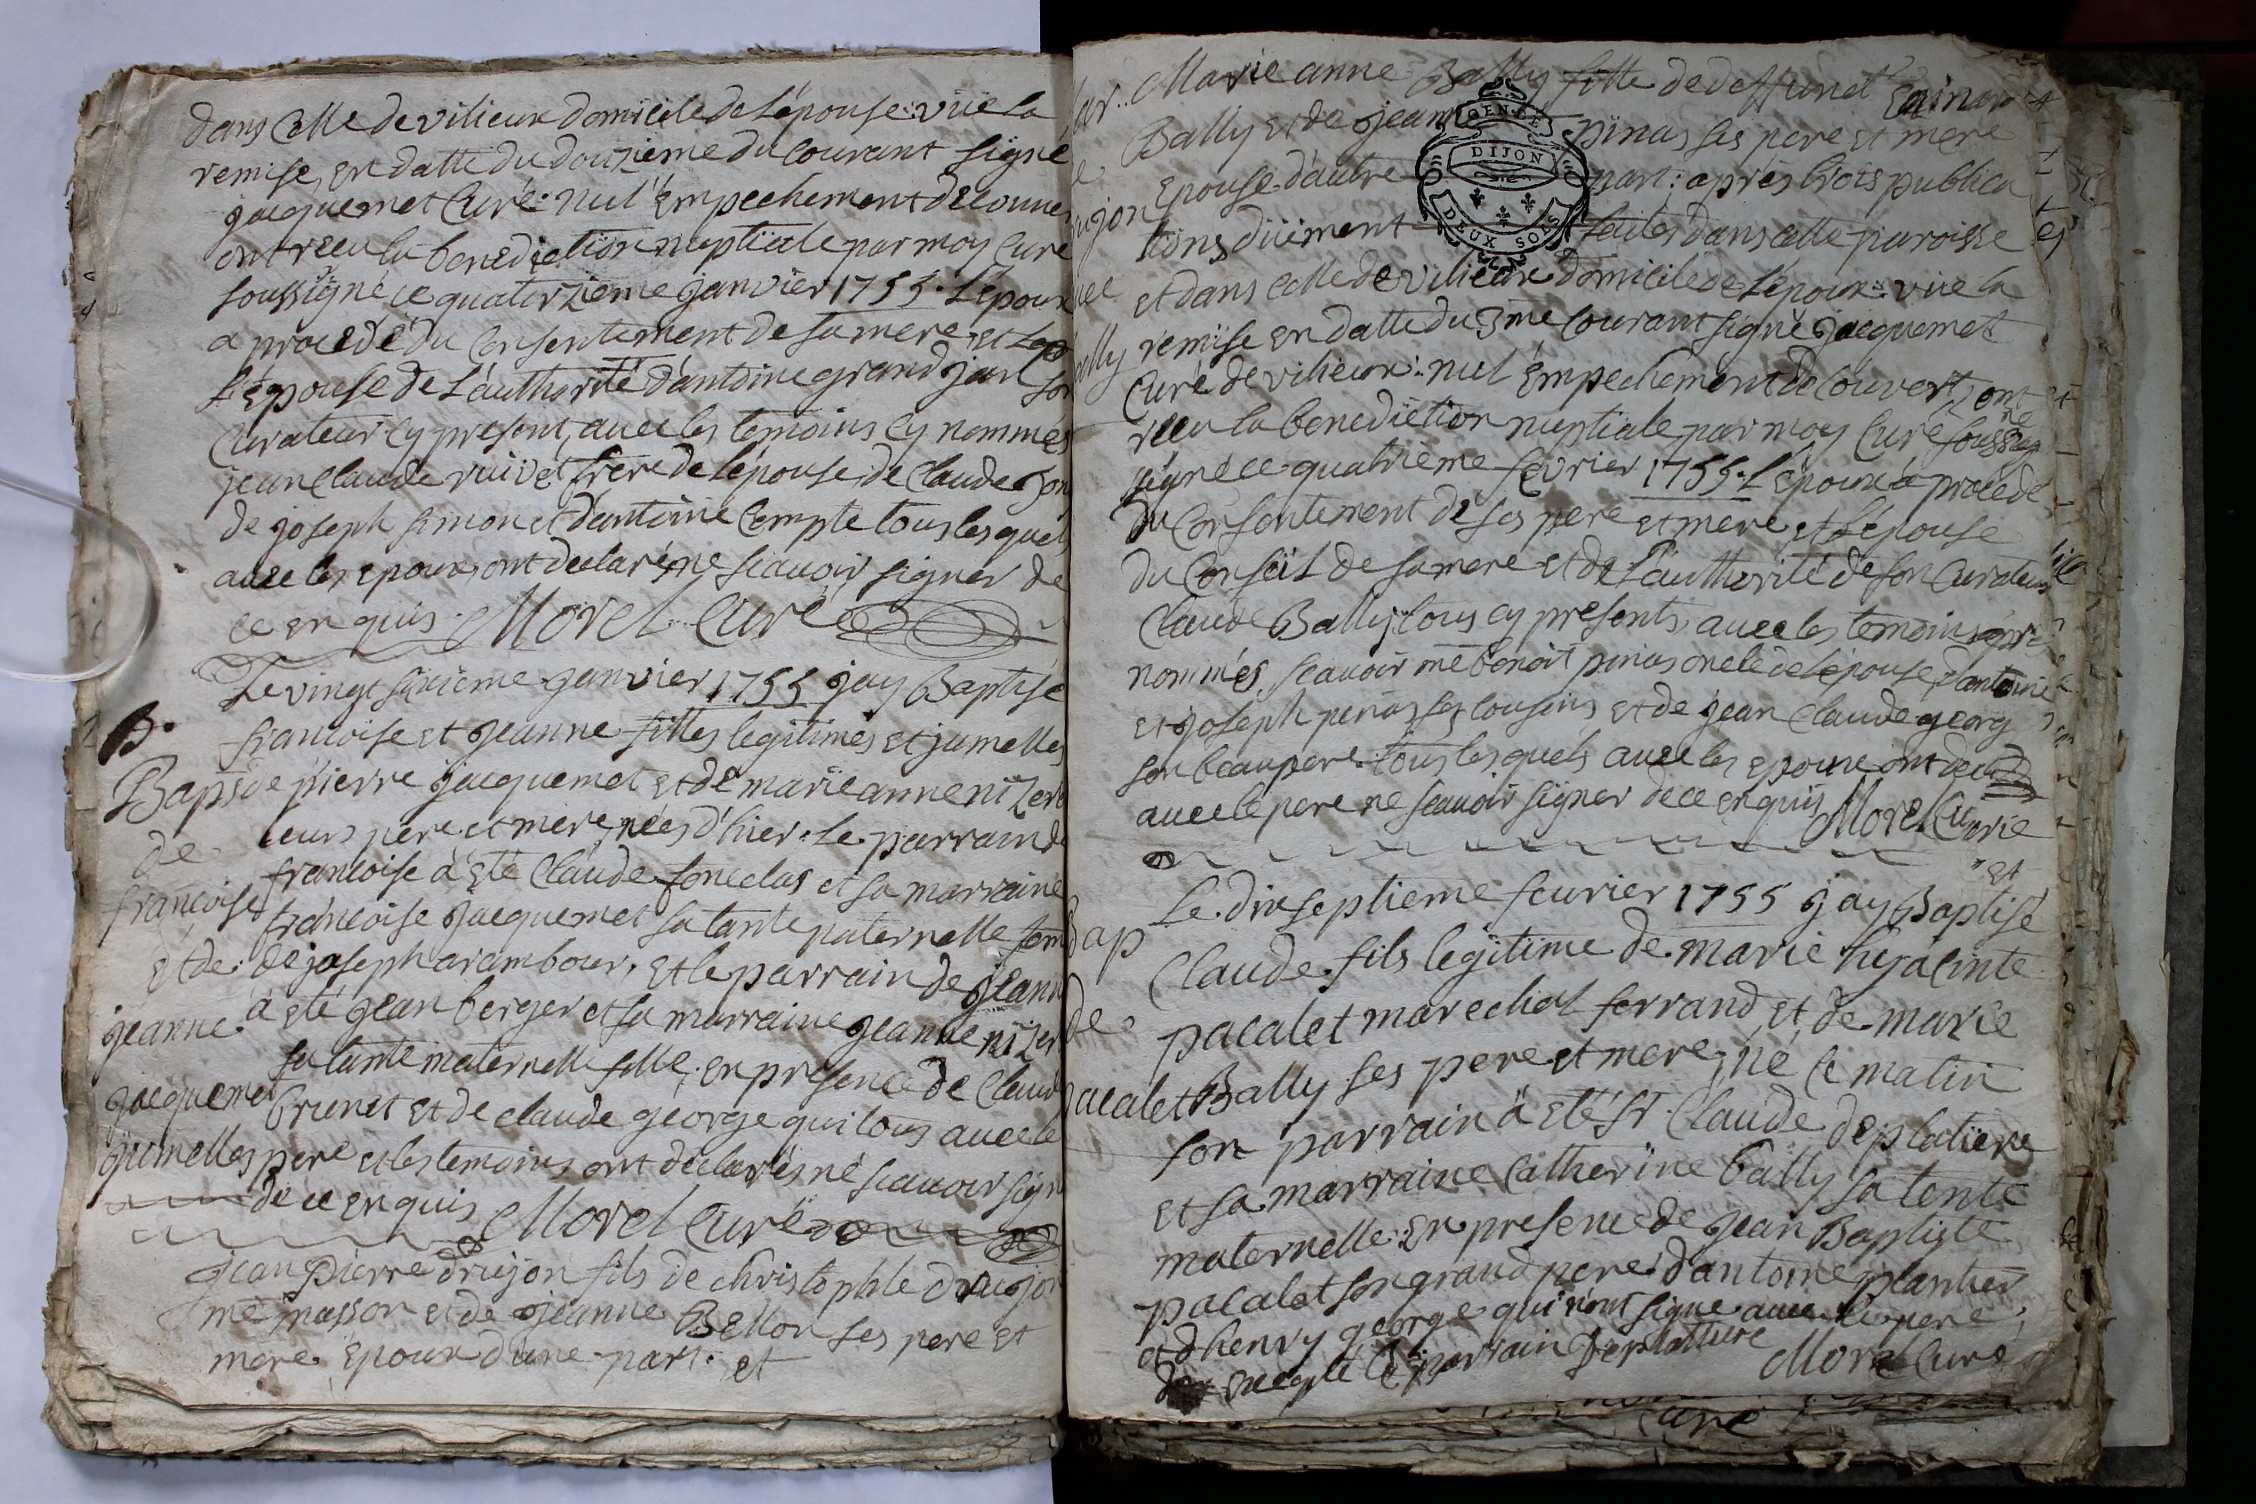 dans celle de vilieux domicile de l'épouse: vüe la
remise en datte du douzième du courant signé
jacquemet Curé: nul Empechement decouver
ont reçu la benediction nuptiale par moy Curé
soussigné ce quatorzième janvier 1755. L'époux
a procedé du Consentement de sa mere, et
L'épouse de l'authorité d'antoine grand jan son
Curateur cy present, avec les temoins cy nommés
jean Claude ruivet frere de l'épouse, de Claude
de joseph simon et d'antoine Compte tous lesquels
avec les epoux ont declaré ne scavoir signer de
ce enquis. Morel Curé
Le vingt sixième janvier 1755 jay Baptisé
B.
francoise et jeanne filles legitimes et jumelles
Baps de pierre jacquemet et de marie anne nizer
leurs pere et mere, nées d'hier. Le parrain de
de
francoise à eté Claude fonclas et sa marraine
françoise
francoise jacquemet sa tante paternelle fem
Et de de joseph arambour, et le parrain de jeanne
jeanne à eté jean berger et sa marraine jeanne nizer
sa tante maternelle fille, en presence de Claude
jacquemet
brunet et de claude george qui tous avec le
jumelles pere et les temoins ont déclarés ne scavoir sign
de ce enquis Morel Curé
jean pierre drujon fils de christophle drujon
me masson et de jeanne Bellon ses pere et
mere, époux d'une part. et
Marie anne Bally fille de deffunct
Bally et de jean pinas ses pere et mere
Epouse d'autre part: après trois publica
GEN DE DIJON
DEUX SOLS
tions düement faites dans cette paroisse
et dans celle de vilieux domicile de l'époux: vüe la
remise en datte du 3me courant signé jacquemet
Curé de vilieux: nul Empechement decouvert, ont
reçu la benediction nuptiale par moy Curé sousig
signé ce quatrième fevrier 1755. L'époux à procedé
du Consentement de ses pere et mere et l'épouse
du Conseil de sa mere et de l'authorité de son Curateur
Claude Bally, tous cy presents, avec les temoins
nommés, scavoir me benoit pinas oncle de l'épouse, d'antoine
et joseph pinas ses cousins et de jean Claude georg
son beaupere. tous lesquels avec les epoux ont decl
avec le pere ne scavoir signer de ce enquis Morel Curé
"et
Le dix septieme fevrier 1755 jay Baptisé
Bap
Claude fils legitime de marie hyacinte
de
pacalet marechal ferrand et de marie
pacalet Bally ses pere et mere, né ce matin
son parrain à eté sr. Claude deplatiere
et sa marraine Catherine bally sa tente
maternelle: En presence de jean Baptiste
pacalet son grand pere d'antoine plantier
et d'henry george qui n'ont signé avec le pere,
excepté le parrain Deplattiere Morel Curé
Curé